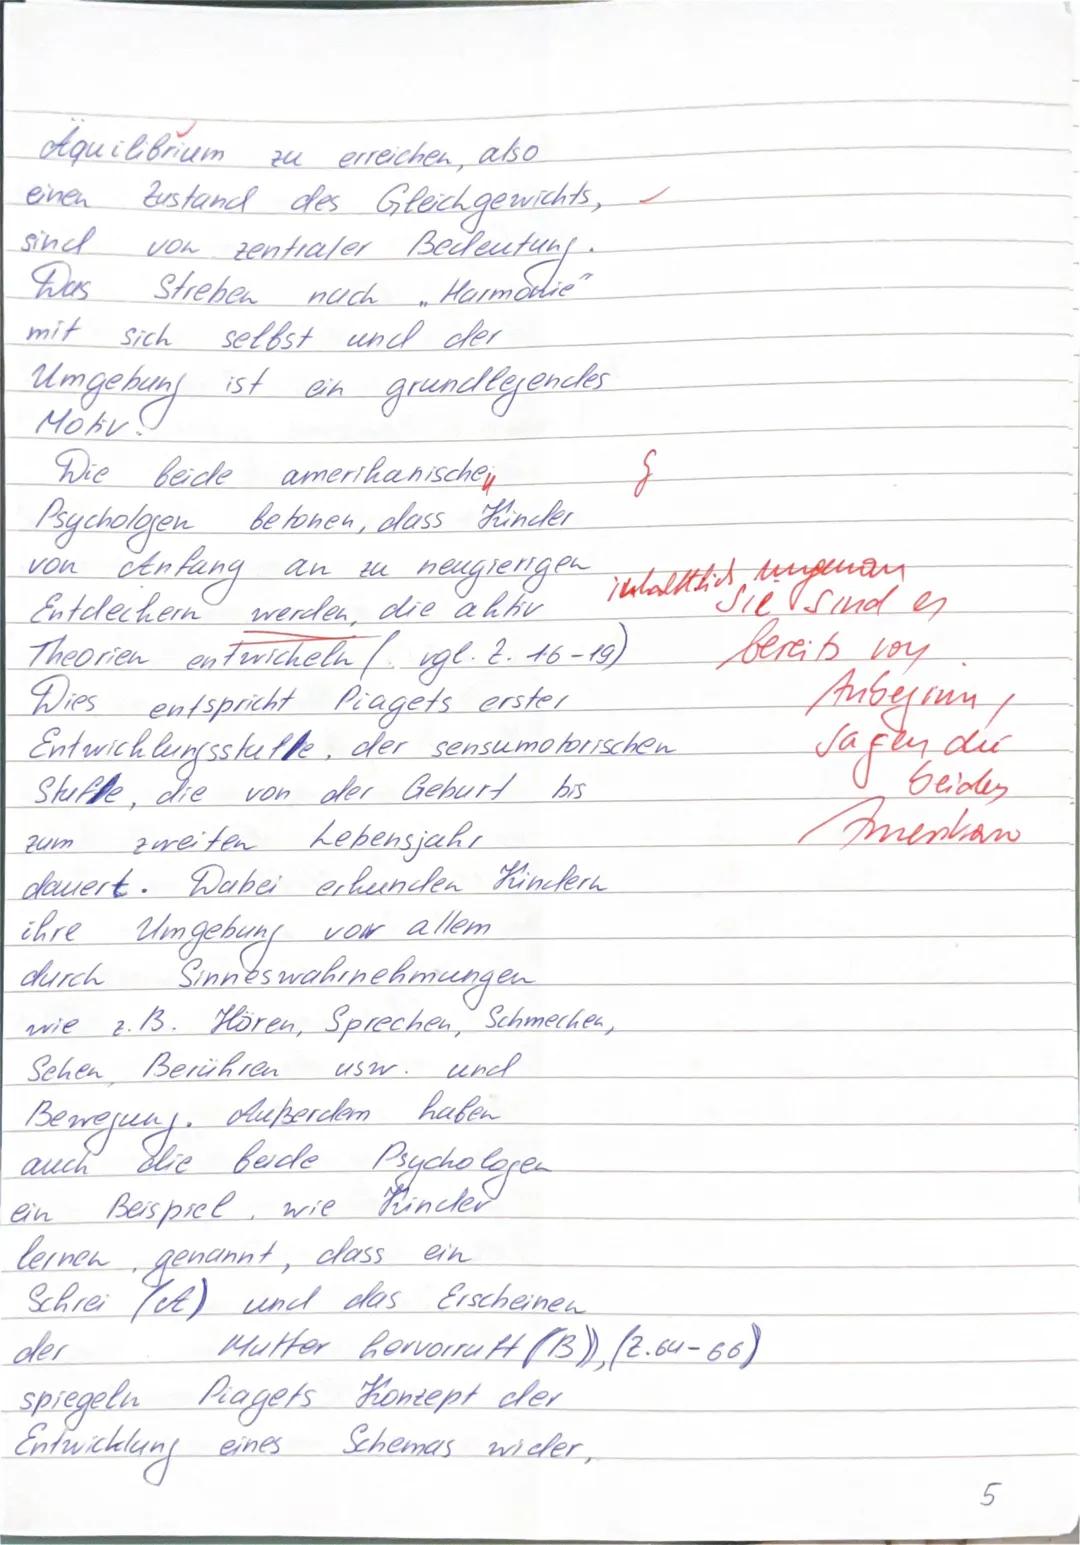 Äquilibrium zu erreichen, also
einen Zustand des Gleichgewichts,
sind von zentraler Bedeutung.
Das Streben nach „Harmonie"
mit sich selbst und der
Umgebung ist ein grundlegendes
Motiv.
Die beide amerikanischen
Psychologen betonen, dass Kinder
von Anfang an zu neugierigen
inhaltlich ungenau
Entdeckern werden, die aktiv
Sie sind es
Theorien entwickeln (vgl. Z. 16-19)
bereits von
Dies entspricht Piagets erster
Anbeginn,
Entwicklungsstufe, der sensumotorischen
sagen die
Stufe, die von der Geburt bis
beiden
zum zweiten Lebensjahr
Amerikan
dauert. Dabei erkunden Kindern
ihre Umgebung vor allem
durch Sinneswahrnehmungen
wie z.B. Hören, Sprechen, Schmecken,
Sehen, Berühren usw. und
Bewegung. Außerdem haben
auch die beide Psychologen
ein Beispiel, wie Kinder
lernen, genannt, dass ein
Schrei (A) und das Erscheinen
der Mutter hervorruft (B)), (Z.64-66)
spiegeln Piagets Konzept der
Entwicklung eines Schemas wider,
5